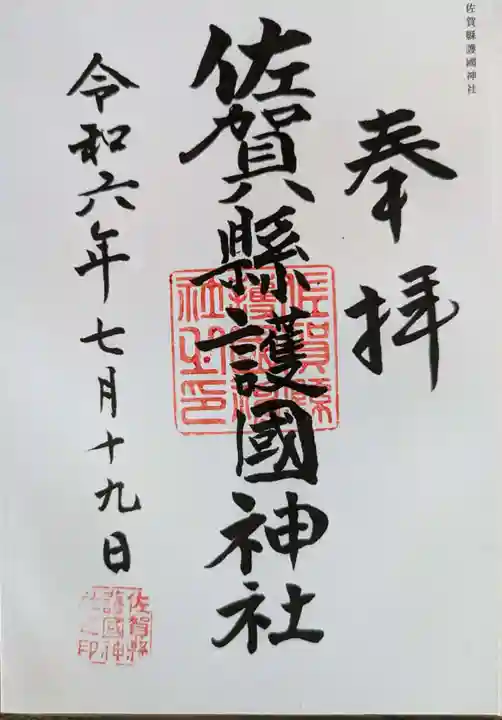 佐賀縣護國神社
奉拝
佐賀縣護國神社
佐賀縣護國神社之印
令和六年七月十九日
佐賀縣護國神社之印